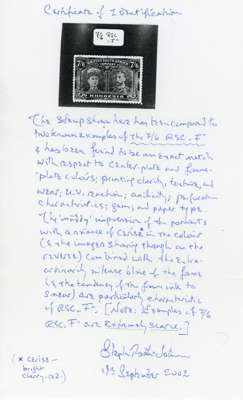 Certificate of Identification
7/6 RSC
-F
BRITISH SOUTH AFRICA
COMPANY
7/6 7/6
RHODESIA
"The Stamp shown here has been compared to
two known examples of the 7/6 RSC. F"
& has been found to be an exact match
with respect to center-plate and frame-
plate colours; printing clarity, texture, and
wear; U.V. reaction; perforation
characteristics; gum; and paper type.
The 'muddy' impression of the portraits
with a nuance of cerise* in the colour
(& the image showing though on the
reverse) combined with the extra-
ordinarily intense blue of the frame
(& the tendency of the frame ink to
smear) are particularly charteristic
of RSC. F. [Note: Examples of 7/6
RSC. F are Extremely scarce.]
September 2002
(* cerise -
bright
cherry-red.)